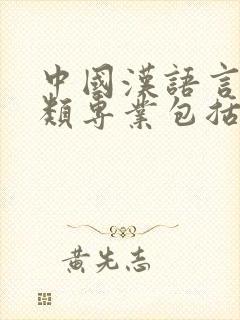 中國漢語言
類專業包括
黃先志